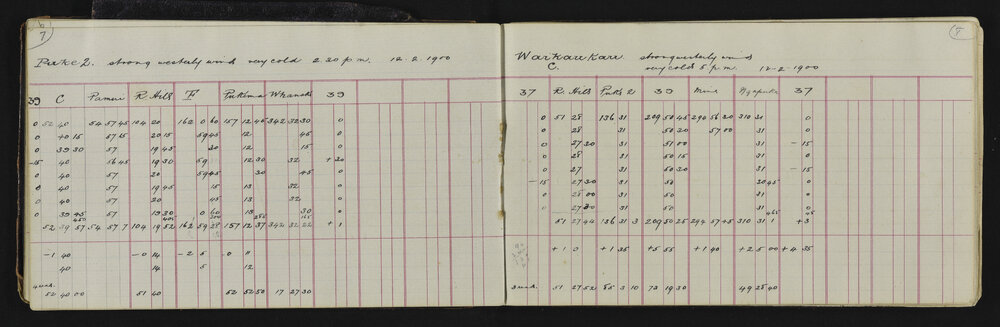 6/7
Puke 2. strong westerly wind very cold 2.30 p.m. 12.2.1900
39 C R. Hills F 39
0 52 40 54 57 45 104 20 162 0 60 157 12 45 342 32 30 0
0 40 15 57 15 20 15 59 45 12 45 0
0 39 30 57 19 45 30 12 15 0
-15 40 56 45 19 30 59 12 30 32 +30
0 40 57 20 59 45 30 45 0
0 40 57 19 45 15 13 32 0
0 40 57 20 45 13 32 0
0 39 45 57 19 30 0 60 13 30 0
52 39 57 54 57 7 104 19 52 162 59 28 157 12 37 342 32 22 +1
-1 40 -0 14 -2 5 -0 11
40 14 5 12
52 40 00 51 40 52 52 50 17 27 30
7
Waikaukau strong westerly wind
C. very cold 5 p.m. 12-2-1900
37 R. Hills Puke 2 39 37
0 51 28 136 31 209 50 45 290 56 30 310 31 0
0 28 31 50 30 57 00 31 0
0 27 30 31 51 00 31 -15
0 28 31 50 15 31 0
0 27 31 50 30 31 -15
-15 27 30 31 50 30 45 0
0 28 00 31 50 31 0
0 27 30 31 50 31 0
51 27 44 136 31 3 209 50 25 294 57 +5 310 31 1 +3
+1 0 +1 35 +5 55 +1 40 +2 5 00 +4 35
51 27 52 85 3 10 73 19 30 49 25 40